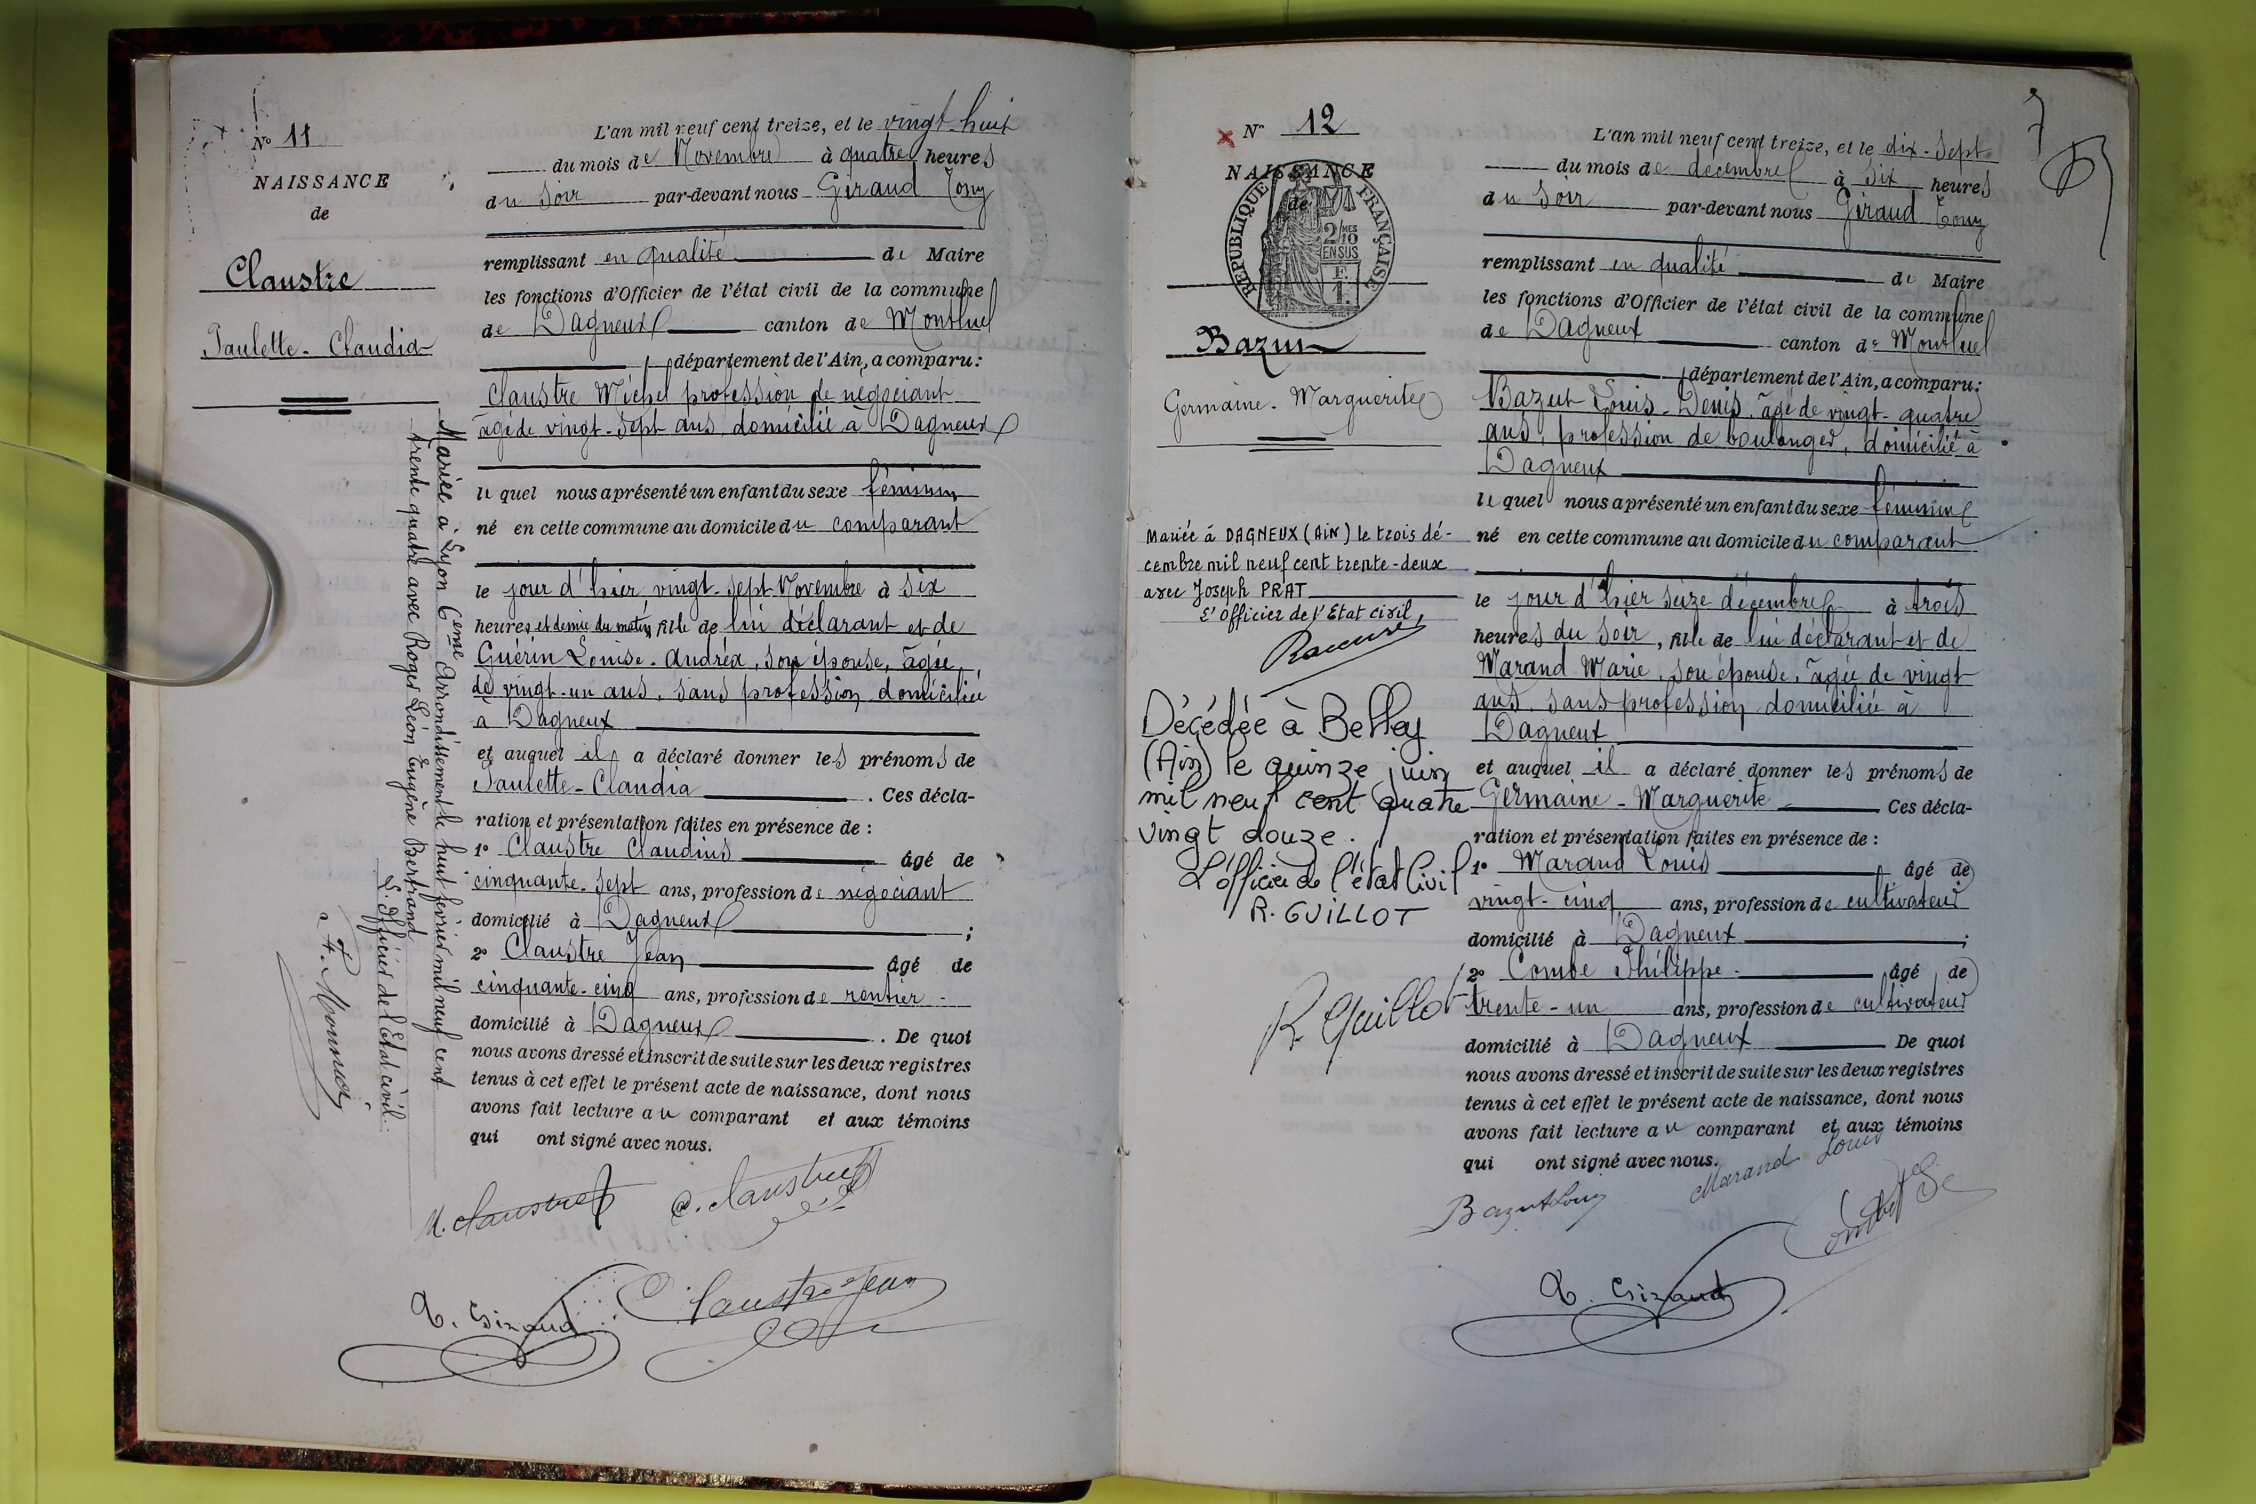 No 11
NAISSANCE
de
Claustre
Paulette-Claudia
L'an mil neuf cent treize, et le vingt-huit
du mois de Novembre à quatre heures
du soir par-devant nous Giraud Tony
remplissant en qualité de Maire
les fonctions d'Officier de l'état civil de la commune
de Dagneux canton de Montluel
département de l'Ain, a comparu:
Claustre Michel profession de négociant
âgé de vingt-sept ans, domicilié à Dagneux
lequel nous a présenté un enfant du sexe féminin
né en cette commune au domicile du comparant
le jour d'hier vingt-sept Novembre à six
heures et demie du matin, fille de lui déclarant et de
Guérin Louise-Andréa, son épouse, âgée
de vingt-un ans, sans profession domiciliée
à Dagneux
et auquel il a déclaré donner les prénoms de
Paulette-Claudia. Ces décla-
ration et présentation faites en présence de :
1o Claustre Claudius âgé de
cinquante-sept ans, profession de négociant
domicilié à Dagneux ;
2o Claustre Jean âgé de
cinquante-cinq ans, profession de rentier
domicilié à Dagneux. De quoi
nous avons dressé et inscrit de suite sur les deux registres
tenus à cet effet le présent acte de naissance, dont nous
avons fait lecture au comparant et aux témoins
qui ont signé avec nous.
M. Claustre C. Claustre
T. Giraud Claustre Jean
Mariée à Lyon 6eme Arrondissement le huit fevrier mil neuf cent
trente quatre avec Roger Léon Eugène Bertrand
L'Officier de l'Etat civil.
7
No 12
NAISSANCE
de
RÉPUBLIQUE FRANÇAISE
2/10 MES
EN SUS
F.
1.
Bazut
Germaine-Marguerite
Mariée à DAGNEUX (AiN) le trois dé-
cembre mil neuf cent trente-deux
avec Joseph PRAT
L'Officier de l'Etat civil,
Décédée à Belley
(Ain) le quinze juin
mil neuf cent quatre
vingt douze.
L'officier de l'état Civil
R. GUILLOT
R Guillot
L'an mil neuf cent treize, et le dix-sept
du mois de décembre à six heures
du soir par-devant nous Giraud Tony
remplissant en qualité de Maire
les fonctions d'Officier de l'état civil de la commune
de Dagneux canton de Montluel
département de l'Ain, a comparu:
Bazut Louis-Denis, âgé de vingt-quatre
ans, profession de boulanger, domicilié à
Dagneux
lequel nous a présenté un enfant du sexe féminin
né en cette commune au domicile du comparant
le jour d'hier seize décembre à trois
heures du soir, fille de lui déclarant et de
Marand Marie, son épouse, âgée de vingt
ans, sans profession domiciliée à
Dagneux
et auquel il a déclaré donner les prénoms de
Germaine-Marguerite Ces décla-
ration et présentation faites en présence de :
1o Marand Louis âgé de
vingt-cinq ans, profession de cultivateur
domicilié à Dagneux ;
2o Combe Philippe âgé de
trente-un ans, profession de cultivateur
domicilié à Dagneux De quoi
nous avons dressé et inscrit de suite sur les deux registres
tenus à cet effet le présent acte de naissance, dont nous
avons fait lecture au comparant et aux témoins
qui ont signé avec nous.
Bazut Louis Marand Louis
T. Giraud